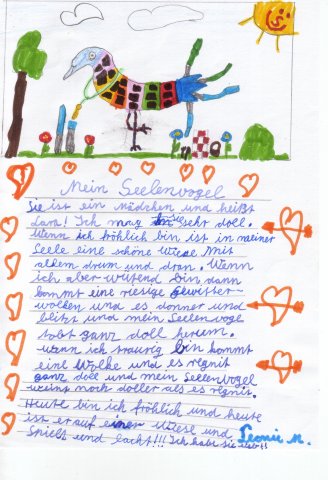 Mein Seelenvogel
Sie ist ein Mädchen und heißt
Lara! Ich mag Sie sehr doll.
Wenn ich fröhlich bin ist in meiner
Seele eine schöne Wiese mit
allem drum und dran. Wenn
ich aber wütend bin dann
kommt eine riesige Gewitter
wolken und es donner und
blitzt und mein Seelenvoge
tobt ganz doll herum.
wenn ich traurig bin kommt
eine Wolke und es regnit
ganz doll und mein Seelenvogel
weint noch doller als es regnit.
Heute bin ich fröhlich und heute
ist er auf einer Wiese und
Spielt und lacht!!! Ich habe sie lieb!!
Leonie M.